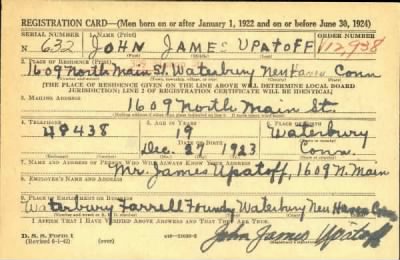 REGISTRATION CARD—(Men born on or after January 1, 1922 and on or before June 30, 1924)
SERIAL NUMBER 1. NAME (Print) ORDER NUMBER
N 632 JOHN JAMES UPATOFF 12,938
2. PLACE OF RESIDENCE (Print)
1609 North Main St. Waterbury New Haven Conn
(THE PLACE OF RESIDENCE GIVEN ON THE LINE ABOVE WILL DETERMINE LOCAL BOARD
JURISDICTION; LINE 2 OF REGISTRATION CERTIFICATE WILL BE IDENTICAL)
3. MAILING ADDRESS
1609 North Main St.
4. TELEPHONE 5. AGE IN YEARS 6. PLACE OF BIRTH
48438 19 Waterbury
DATE OF BIRTH
Dec. 27 1923 Conn.
7. NAME AND ADDRESS OF PERSON WHO WILL ALWAYS KNOW YOUR ADDRESS
Mr. James Upatoff, 1609 N. Main
8. EMPLOYER'S NAME AND ADDRESS
9. PLACE OF EMPLOYMENT OR BUSINESS
Waterbury Farrell Foundy Waterbury New Haven Conn
I AFFIRM THAT I HAVE VERIFIED ABOVE ANSWERS AND THAT THEY ARE TRUE.
D. S. S. Form 1
(Revised 6-1-42)
John James Upatoff